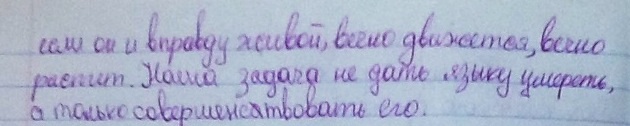 если он и вправду живой, вечно движется, вечно
растит. Наша задача не дать языку умереть,
а только совершенсатвовать его.